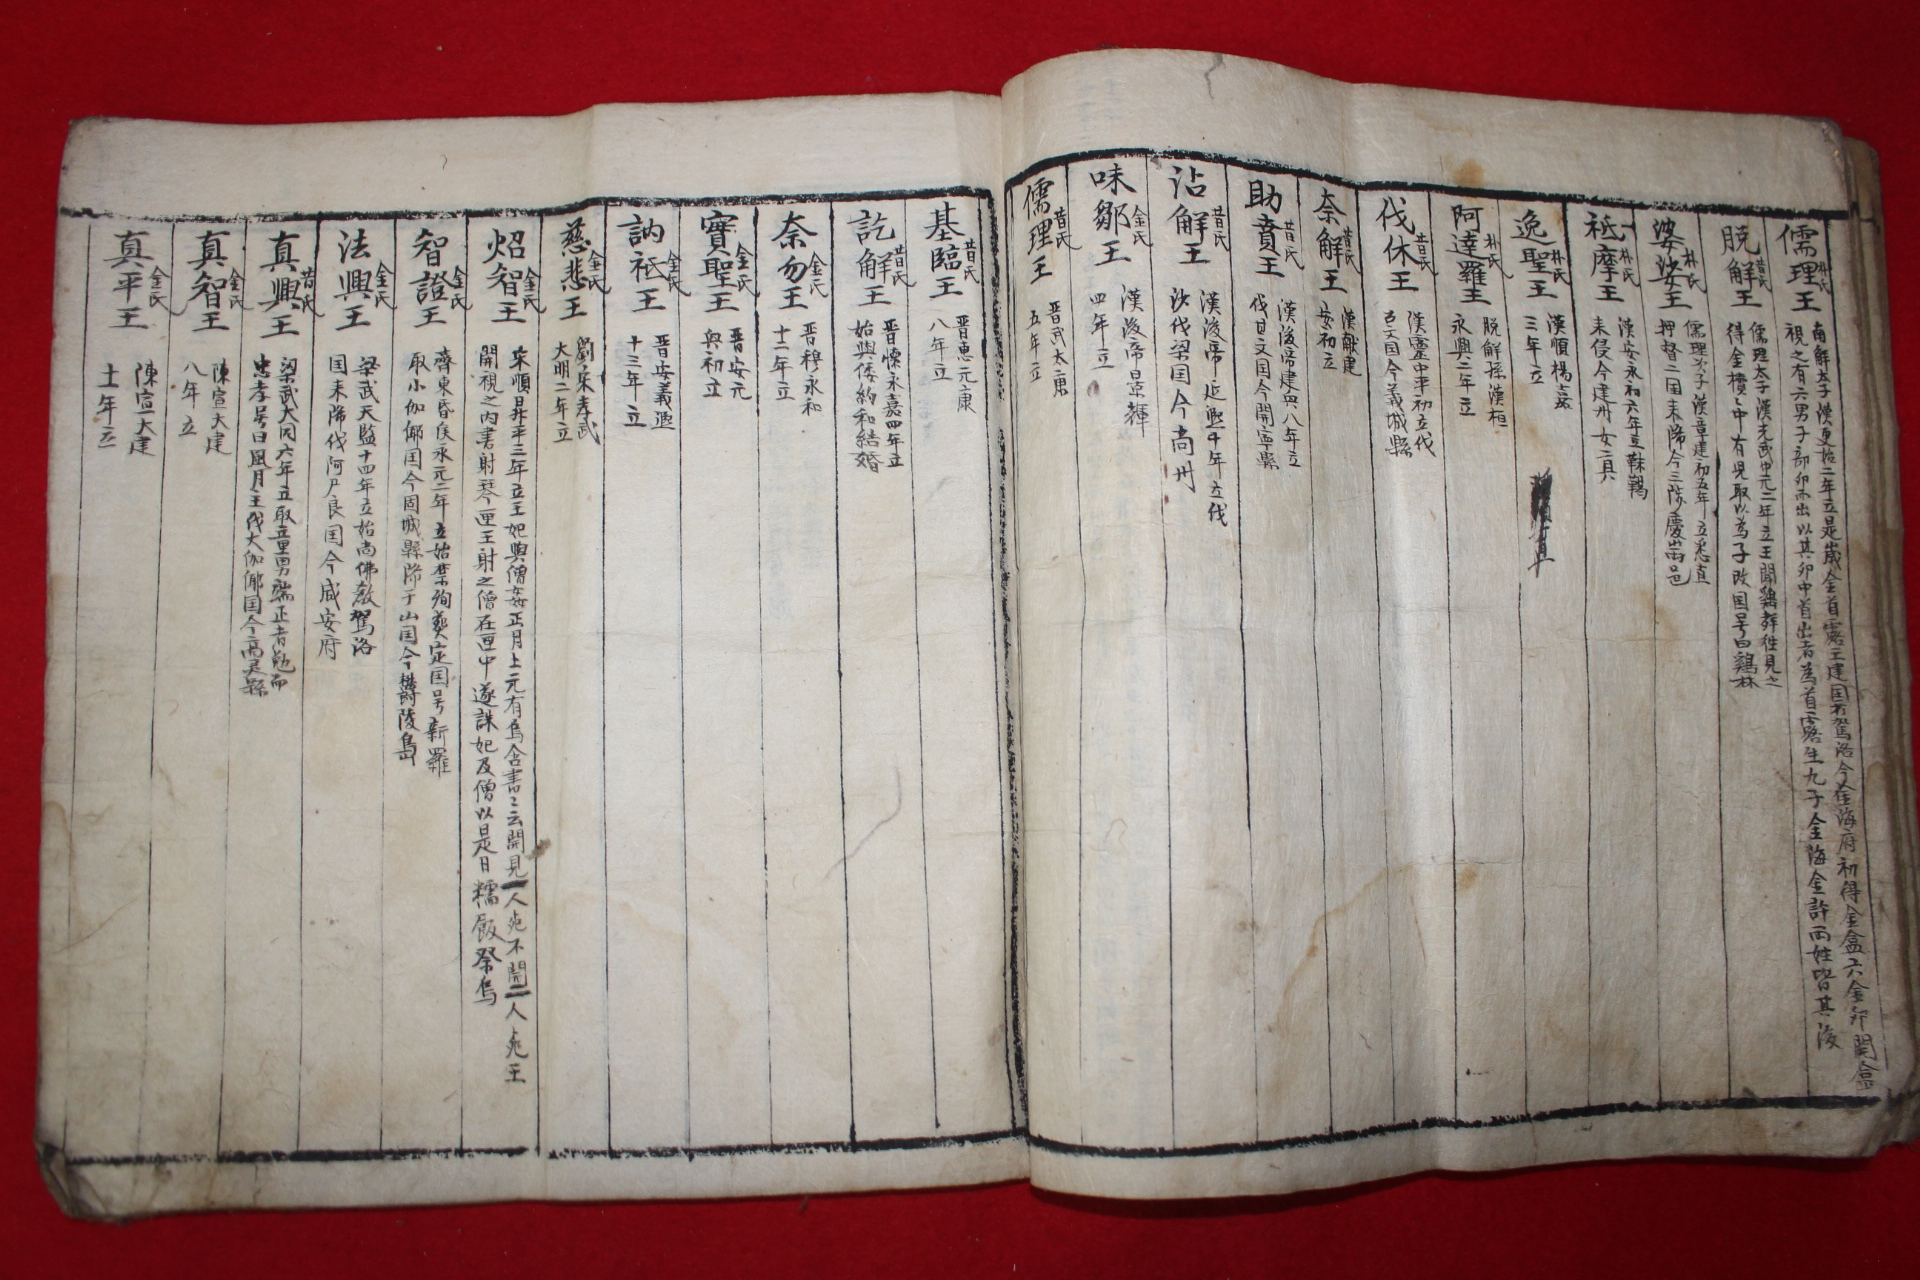 儒理王 朴氏
南解太子漢更始二年立是歲金首露王建国号駕洛今金海府初得金盒六金卵開盒
視之有六男子部卵而出以其卵中首出者為首露生九子金海金許両姓皆其後
脱解王 昔氏
儒理太子漢光武中元二年立王聞鷄莽往見之
得金樻中有児取以為子改国号曰鷄林
婆娑王 朴氏
儒理次子漢章建初五年立悉直
押督二国来降今三陟慶山邑
祗摩王 朴氏
漢安永初六年立靺鞨
来侵今建州女真
逸聖王 朴氏
漢順楊嘉
三年立
阿達羅王 朴氏
脱解孫漢桓
永興二年立
伐休王 昔氏
漢靈中平初立伐
召文国今義城縣
奈解王 昔氏
漢獻建
安初立
助賁王 昔氏
漢後帝建興八年立
伐甘文国今開寧縣
沾解王 昔氏
漢後帝延熙十年立伐
沙伐梁国今尚州
味鄒王 金氏
漢後帝景輝
四年立
儒理王 昔氏
晋武太康
五年立
基臨王 昔氏
晋惠元康
八年立
訖解王 昔氏
晋懷永嘉四年立
始與倭約和結婚
奈勿王 金氏
晋穆永和
十二年立
實聖王 金氏
晋安元
興初立
訥祗王 金氏
晋安義熙
十三年立
慈悲王 金氏
劉宋孝武
大明二年立
炤智王 金氏
宋順昇平三年立王妃與僧姦正月上元有烏含書云開見一人死不開二人死王
開視之内書射琴匣王射之僧在匣中遂誅妃及僧以是日糯飯祭烏
智證王 金氏
齊東昏侯永元二年立始禁殉葬定国号新羅
取小伽倻国今固城縣降于山国今欝陵島
法興王 金氏
梁武天監十四年立始尚佛教駕洛
国来降伐阿尸良国今咸安府
真興王 昔氏
梁武大同六年立取童男端正者勉而
忠孝号曰風月主伐大伽倻国今高灵縣
真智王 金氏
陳宣大建
八年立
真平王 金氏
陳宣大建
十一年立